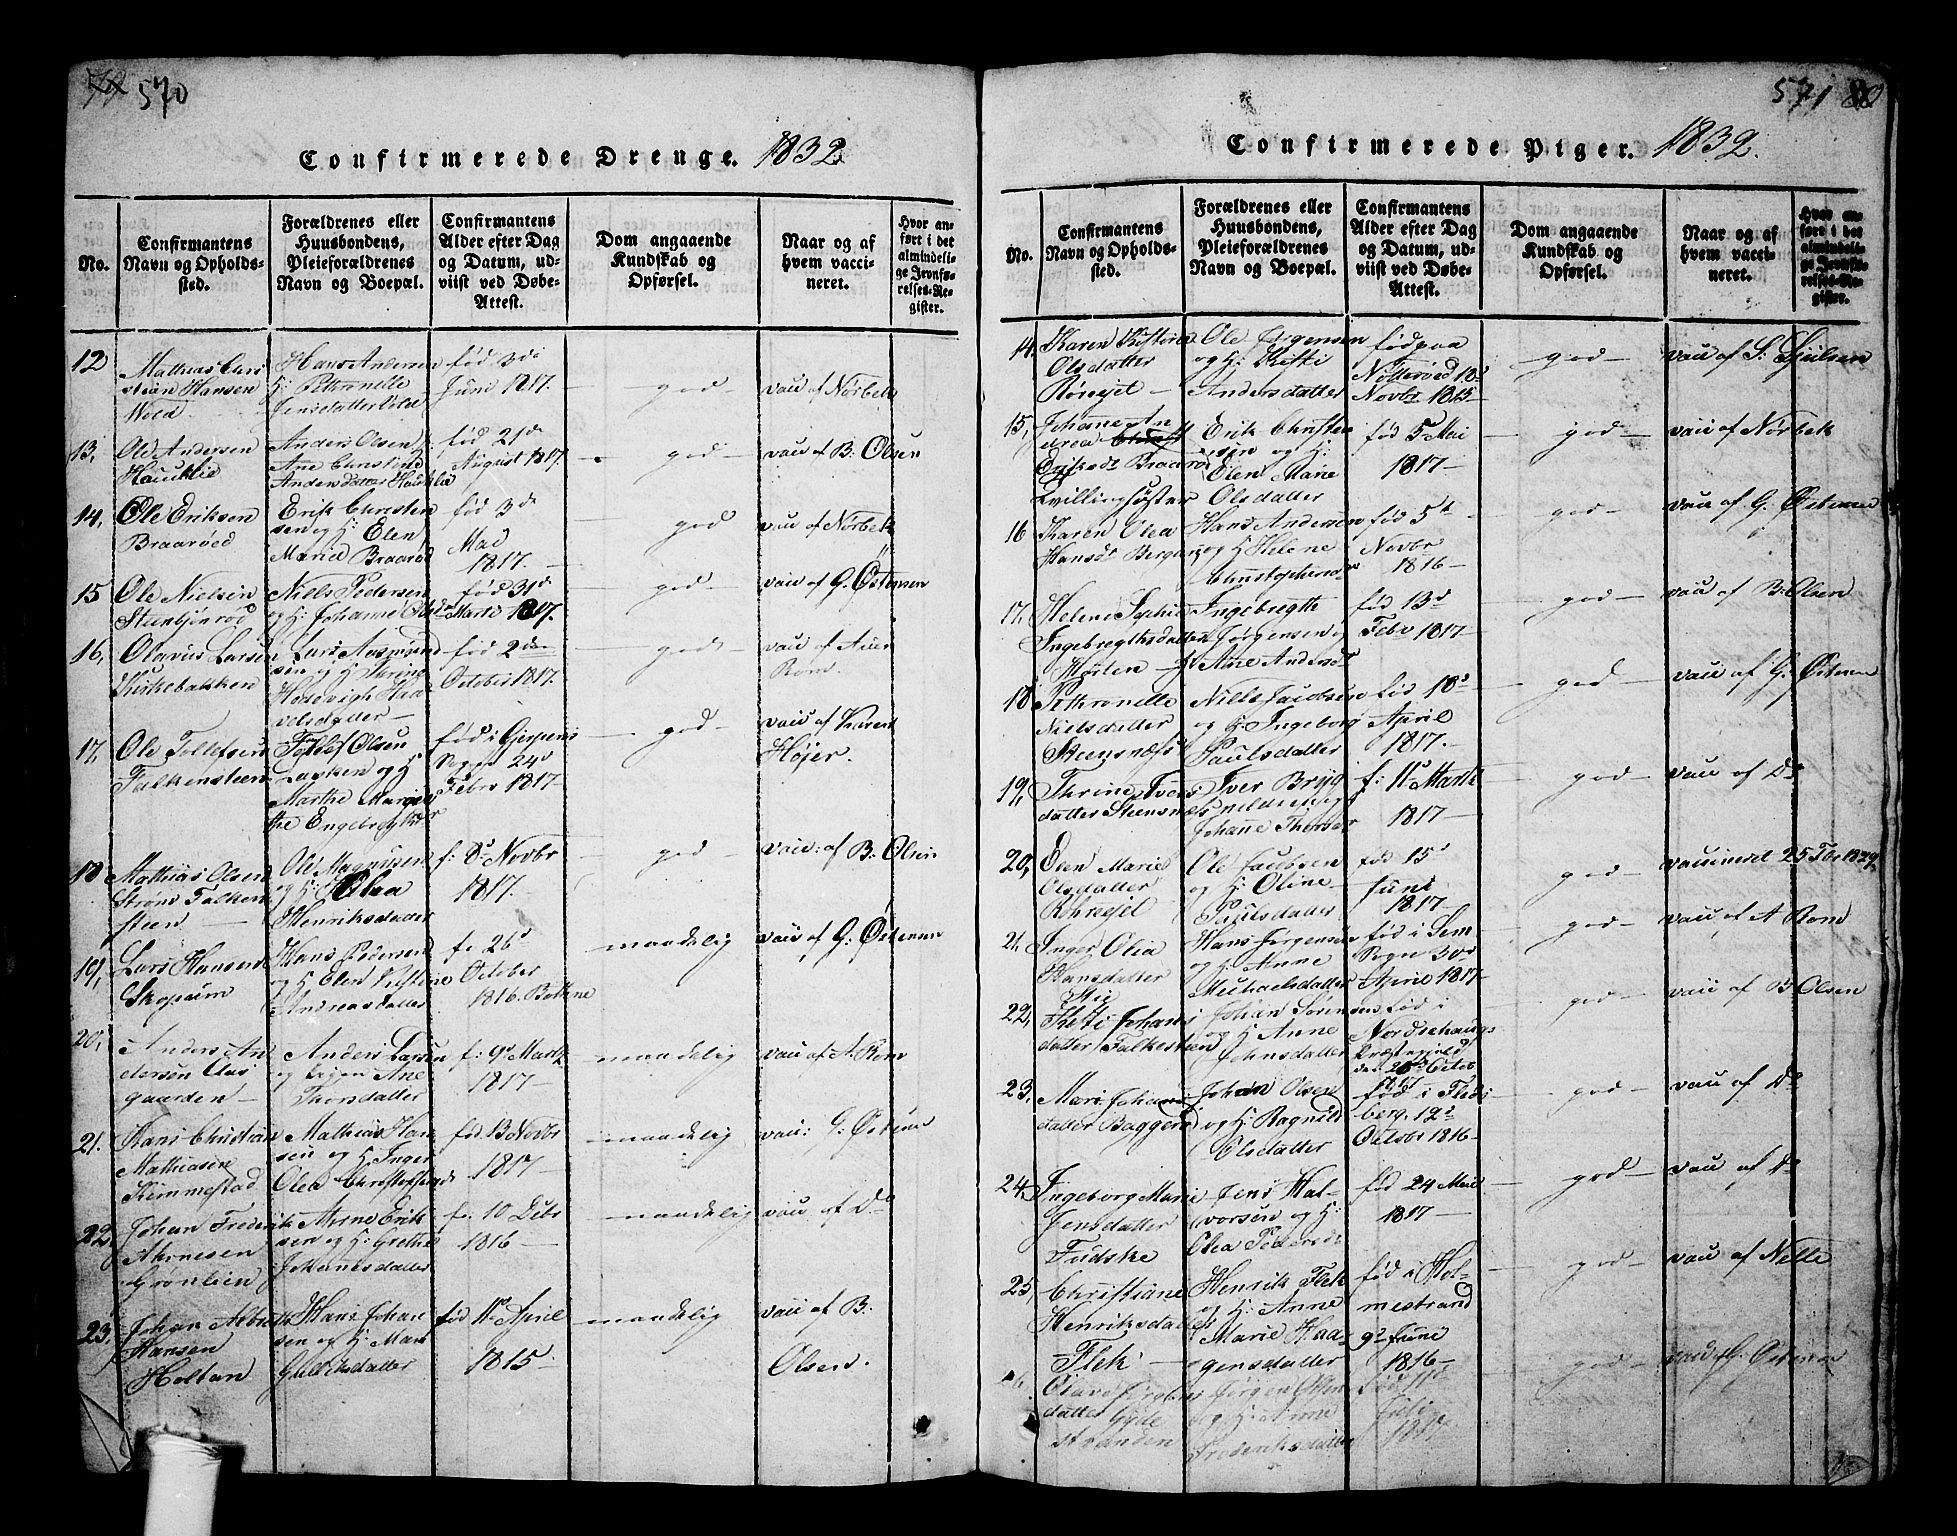 570
Confirmerede Drenge. 1832.
No.
Confirmantens
Navn og Opholds-
sted.
Forældrenes eller
Huusbondens,
Pleieforældrenes
Navn og Boepæl.
Confirmantens
Alder efter Dag
og Datum, ud-
viist ved Døbe-
Attest.
Dom angaaende
Kundskab og
Opførsel.
Naar og af
hvem vacci-
neret.
Hvor an-
ført i det
almindeli-
ge Jevnfø-
relses-Re-
gister.
12
Mathias Chri
stian Hansen
Wold
Hans Andersen
H: Petronelle
Jensdatter Vold
fød 3di
Juni 1817.
god
vac: af Nørbek
13,
Ole Andersen
Hauklie
Anders Olsen
Ane Christine
Andersdatter Hauklie
fød 21de
August 1817.
god
vac: af B: Olsen
14,
Ole Eriksen
Braarøed
Erik Christen
sen og H: Elen
Marie Braarød
fød 3de
Mai
1817.
god
vac af Nørbek
15
Ole Nielsen
Steenbjønrød
Niels Pedersen
og H: Johanne
fød 31de
Marts 1817.
god
vac af G. Østensen
16,
Olavus Larsen
Kirkebakken
Lars Aasmund
sen og H Thrine
Hedevigh Haa
velsdatter
fød 2den
October 1817.
god
vac af Auer
Rom.
17,
Ole Tollefsen
Falkensteen
Tollef Olsen
og H:
Marthe Margre
the Engebregtsdr
fød i Gjerpens
Sogn 24d
Febr 1817
god
vac af Karen
Højer.
18
Mathias Olsen
Strøm Falken
steen
Ole Magnusen
og H: Olea
Henriksdatter
f: 8d Novbr
1817.
god
vac: af B: Olsen
19,
Lars Hansen
Skopum
Hans Pedersen
og H Elen Kistine
Andreasdatter
f. 26d
October
1816. Bottne
maadelig
vac af G: Østensen
20,
Anders An
dersen Aas
gaarden
Anders Larsen
og Ane
Thorsdatter
f: 9d Marts
1817
maadelig
vac af A. Rom
21.
Hans Christian
Mathiasen
Kimmestad
Mathias Han
sen og H Inger
Olea Christofersdr
fød 13 Novbr
1817
maadelig
vac: G: Østensen
22
Johan Frederik
Ahrnesen
Grønlien
Ahrne Erik
sen og H: Grethe
Johannesdatter
f. 10 Debr
1816
maadelig
vac af Do
23.
Johan Albreth
Hansen
Holtan
Hans Johan
sen og H Mari
Guliksdatter
fød 11te April
1815
maadelig
vac af B:
Olsen.
571 80
Confirmerede Piger. 1832.
No.
Confirmantens
Navn og Opholds-
sted.
Forældrenes eller
Huusbondens,
Pleieforældrenes
Navn og Boepæl.
Confirmantens
Alder efter Dag
og Datum, ud-
viist ved Døbe-
Attest.
Dom angaaende
Kundskab og
Opførsel.
Naar og af
hvem vacci-
neret.
Hvor an-
ført i det
almindeli-
ge Jevnfø-
relses-Re-
gister.
14
Karen
Olsdatter
Rørejel
Ole Jørgensen
og H: Kisti
Andersdatter
fød paa
Nøtterøed 18d
Novbr
god
vac af S.
15,
Johanne An
drea
Eriksdr Braarød
Tvillingsøster
Erik Christen
sen og H:
Elen Marie
Olsdatter
fød 5 Mai
1817
god
vac af Nørbek
16
Karen Olea
Hansdr Bergan
Hans Andersen
og H Helene
Christophersdr
fød 5t
Novbr
1816
god
vac af G. Østensen
17,
Helene Sophie
Ingebregtsdatter
Mørten
Ingebregth
Jørgensen og
H Ane Andersdr
fød 13d
Febr 1817
god
vac af B: Olsen
18
Pethronelle
Nielsdatter
Steensnæss
Niels Jacobsen
og H: Ingeborg
Paulsdatter
fød 18d
April
1817.
god
vac af G. Østensen
19,
Thrine Ivers
datter Steensnæs
Iver Bryg
Johanne Thorsdr
f: 11d Marts
1817
god
vac af Do
20,
Elen Marie
Olsdatter
Røhrejel
Ole Jacobsen
og H: Oline
Paulsdatter
fød 15d
Juni
1817
god
vaccineret 25 1829
21,
Inger Olea
Hansdatter
Hans Jørgensen
og H: Anne
Michaelsdatter
fød i Sem
Sogn 30d
April 1817
god
vac af A Rom
22,
Kisti Johans
datter Falkesteen
Johan Sørensen
og H Anne
Johnsdatter
fød i
Præstegield
den 26de Octob
1817
god
vac af B Olsen
23,
Mari Johans
datter Baggerød
Johan Olsen
og H: Ragnild
Olsdatter
fød i Fleds
berg, 12d
Octobr 1816
god
vac af Do
24,
Ingeborg Marie
Jensdatter
Fudske
Jens Hal-
vorsen og H:
Olea Pedersdr
fød 24 Mai
1817
god
vac af Do
25,
Christiane
Henriksdatter
Flek
Henrik Flek
og H: Anne
Marie Haa-
gensdatter
fød i Hol-
mestrand
9d Juni
1816
god
vac af Nelle
Olave Jørgens
datter Gyde
stranden
Jørgen Olsen
og H: Anne
Frederiksdatter
Juli
god
vac af G: Østensen